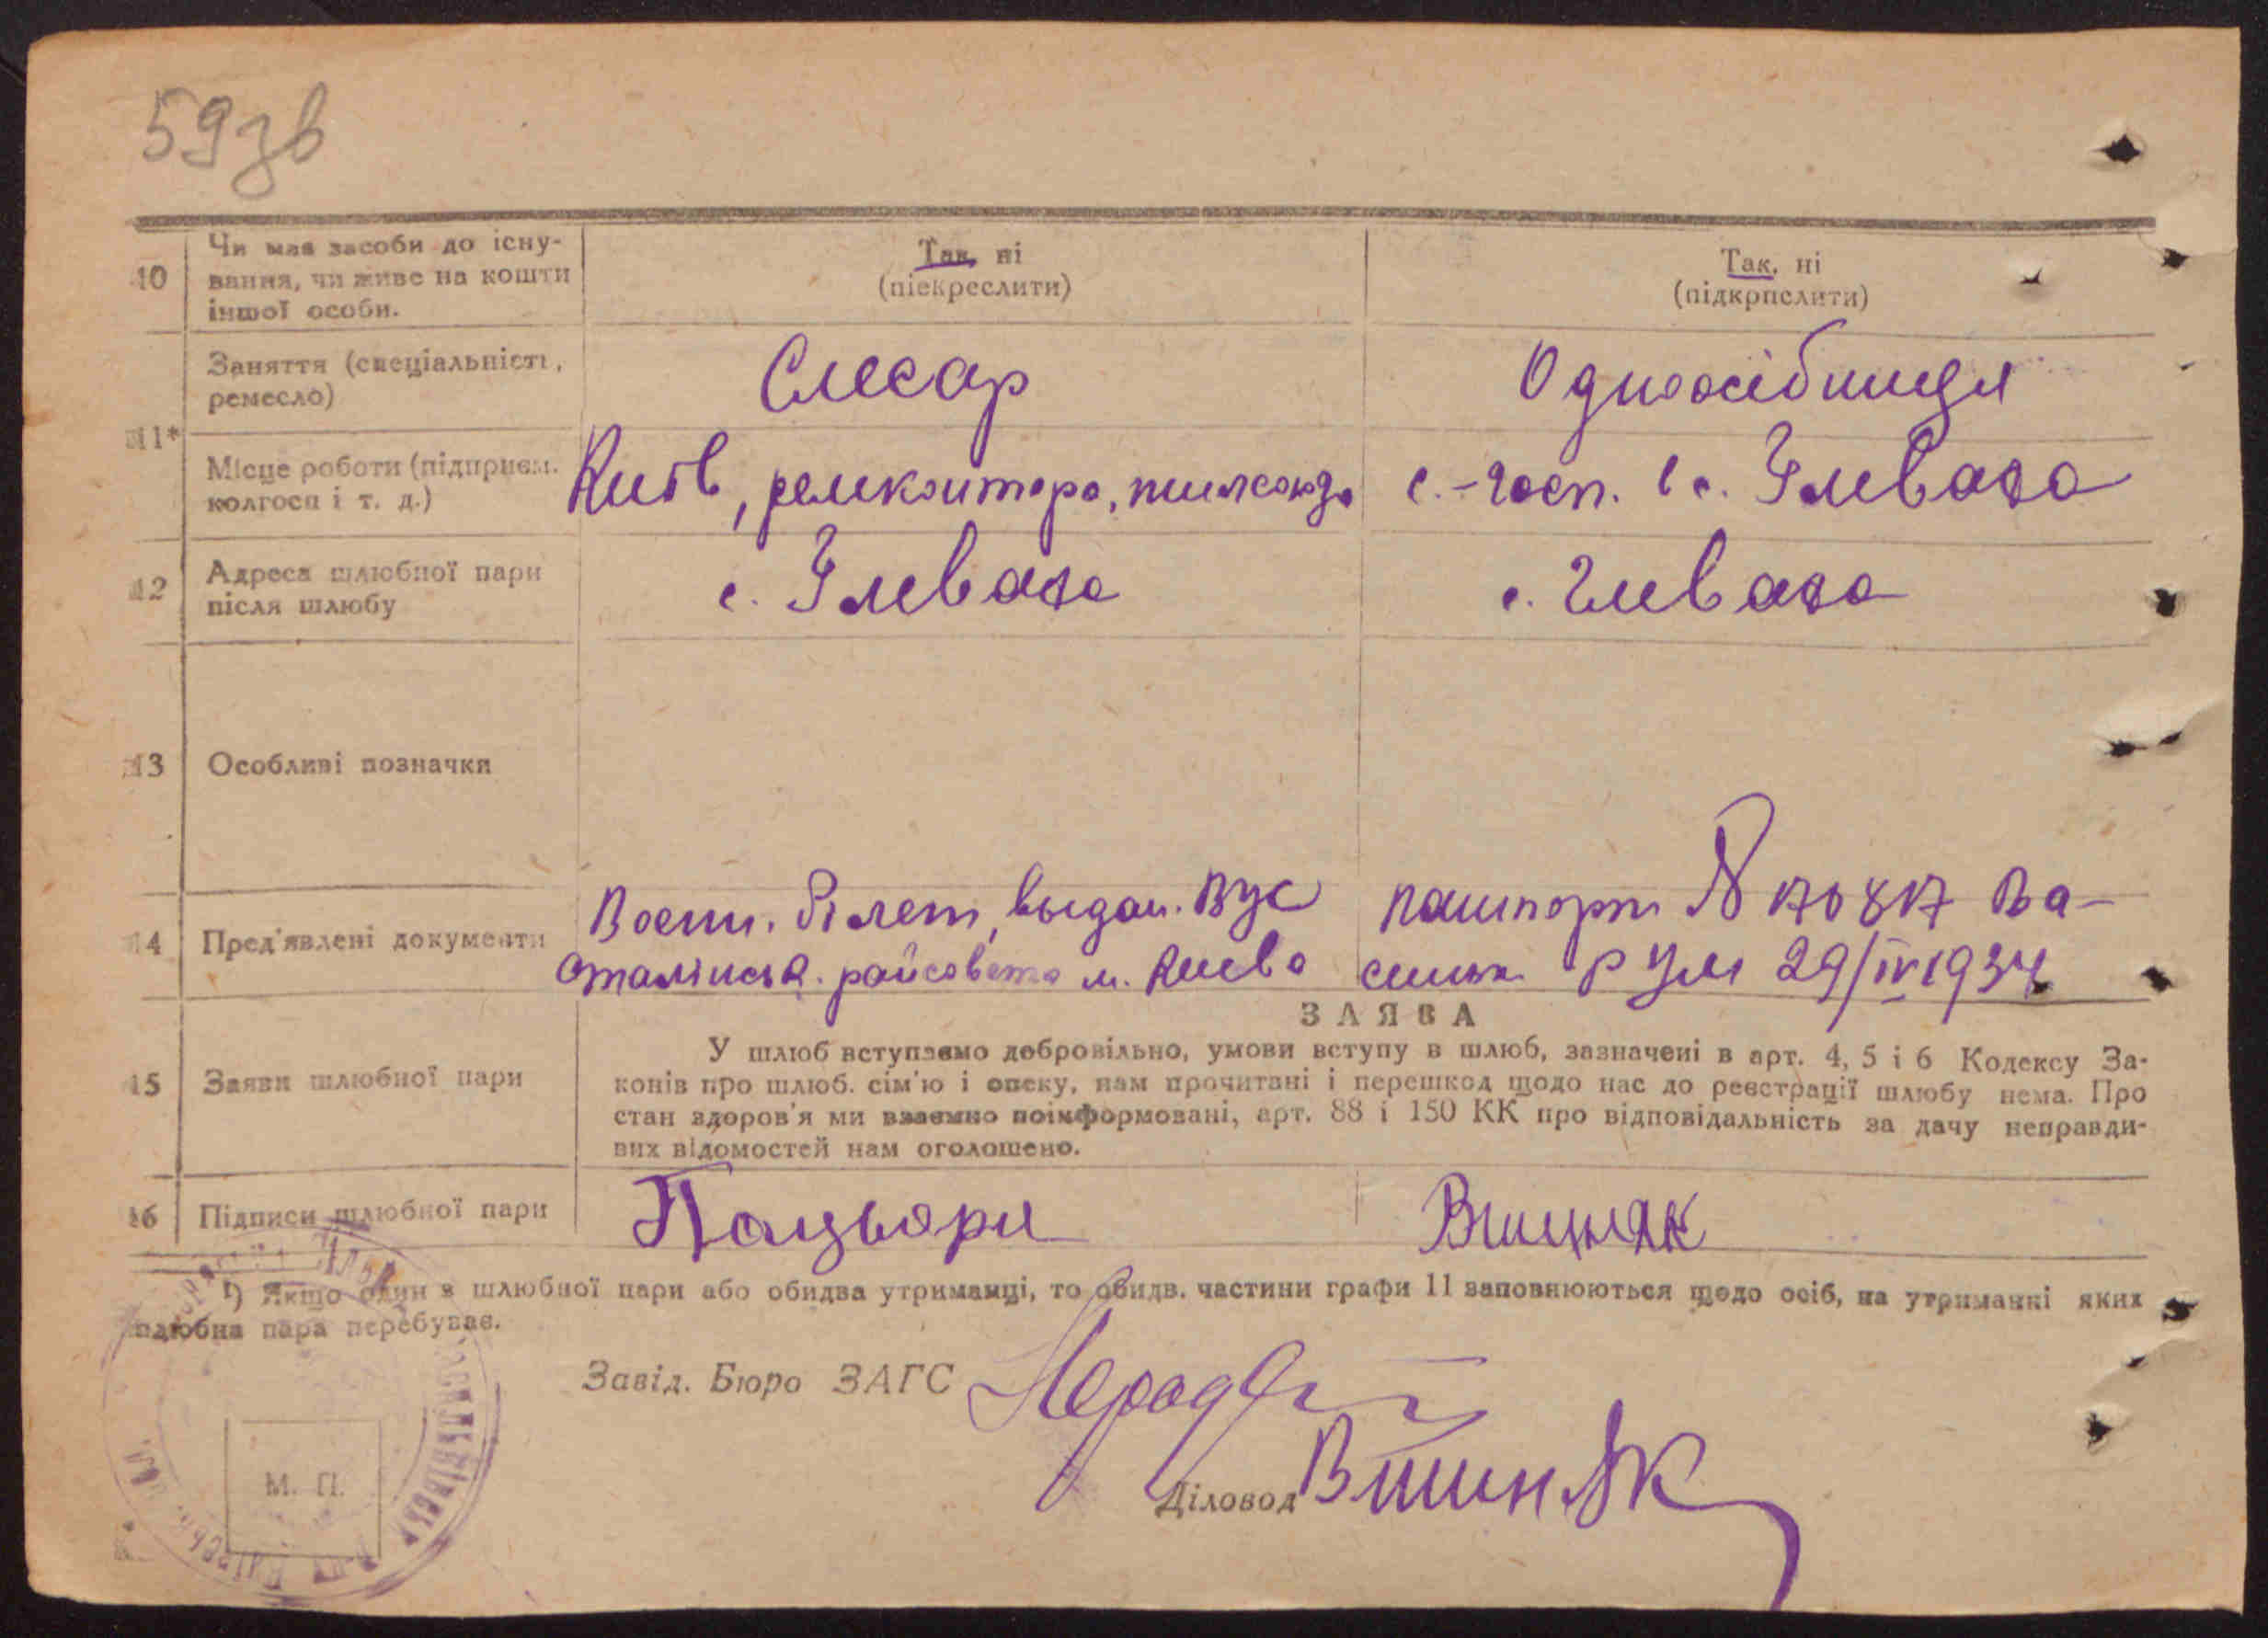 59зв
10
Чи має засоби до існу-
вання, чи живе на кошти
іншої особи.
Так, ні
(піекреслити)
Так, ні
(підкрпслити)
Заняття (спеціальність,
ремесло)
Слесар
Одноосібниця
11*
Місце роботи (підприєм.
колгосп і т. д.)
Київ, ремконтора,
с.-госп. в с. Глеваха
12
Адреса шлюбної пари
після шлюбу
с. Глеваха
с. Глеваха
13
Особливі позначки
14
Пред'явлені документи
Воєнн. білет, выдан. ВУС
Сталінськ. райсовета м. Києва
пашпорт № 170817 Ва-
сильк РУМ 29/IV 1934
15
Заяви шлюбної пари
ЗАЯВА
У шлюб вступаємо добровільно, умови вступу в шлюб, зазначені в арт. 4, 5 і 6 Кодексу За-
конів про шлюб. сім'ю і опеку, нам прочитані і перешкод щодо нас до реєстрації шлюбу нема. Про
стан здоров'я ми взаємно поінформовані, арт. 88 і 150 КК про відповідальність за дачу неправди-
вих відомостей нам оголошено.
16
Підписи шлюбної пари
Пацьора
Вишняк
¹) Якщо один з шлюбної пари або обидва утриманці, то обидв. частини графи 11 заповнюються щодо осіб, на утриманні яких
шлюбна пара перебуває.
Завід. Бюро ЗАГС
Діловод Вишняк
М. П.